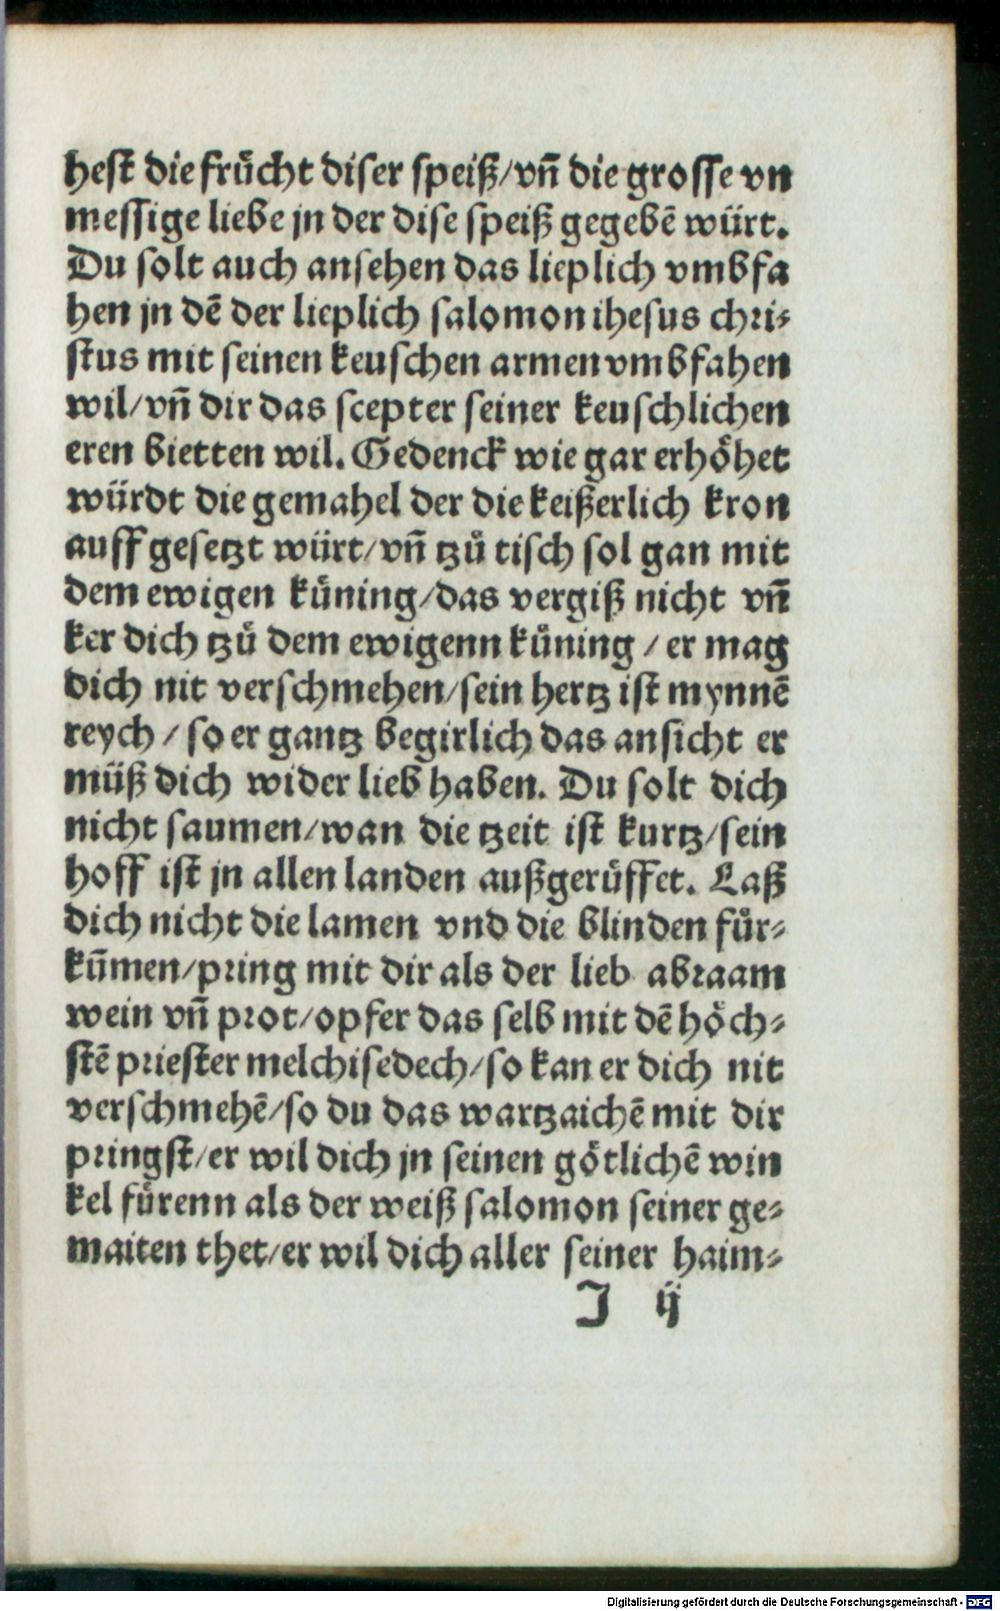 hest die frücht diser speiß/vñ die grosse vn
messige liebe jn der dise speiß gegebē würt.
Du solt auch ansehen das lieplich vmbfa
hen jn dē der lieplich salomon ihesus chri⸗
stus mit seinen keuschen armen vmbfahen
wil/vñ dir das scepter seiner keuschlichen
eren bietten wil. Gedenck wie gar erhöhet
würdt die gemahel der die keißerlich kron
auff gesetzt würt/vñ tzů tisch sol gan mit
dem ewigen küning/das vergiß nicht vñ
ker dich tzů dem ewigenn küning / er mag
dich nit verschmehen/sein hertz ist mynnē
reych / so er gantz begirlich das ansicht er
müß dich wider lieb haben. Du solt dich
nicht saumen/wan die tzeit ist kurtz/sein
hoff ist jn allen landen außgerüffet. Laß
dich nicht die lamen vnd die blinden für⸗
kūmen/pring mit dir als der lieb abraam
wein vñ prot/opfer das selb mit dē höch⸗
stē priester melchisedech/so kan er dich nit
verschmehē/so du das wartzaichē mit dir
pringst/er wil dich jn seinen götlichē win
kel fürenn als der weiß salomon seiner ge⸗
maiten thet/er wil dich aller seiner haim⸗
J ij
Digitalisierung gefördert durch die Deutsche Forschungsgemeinschaft - DFG